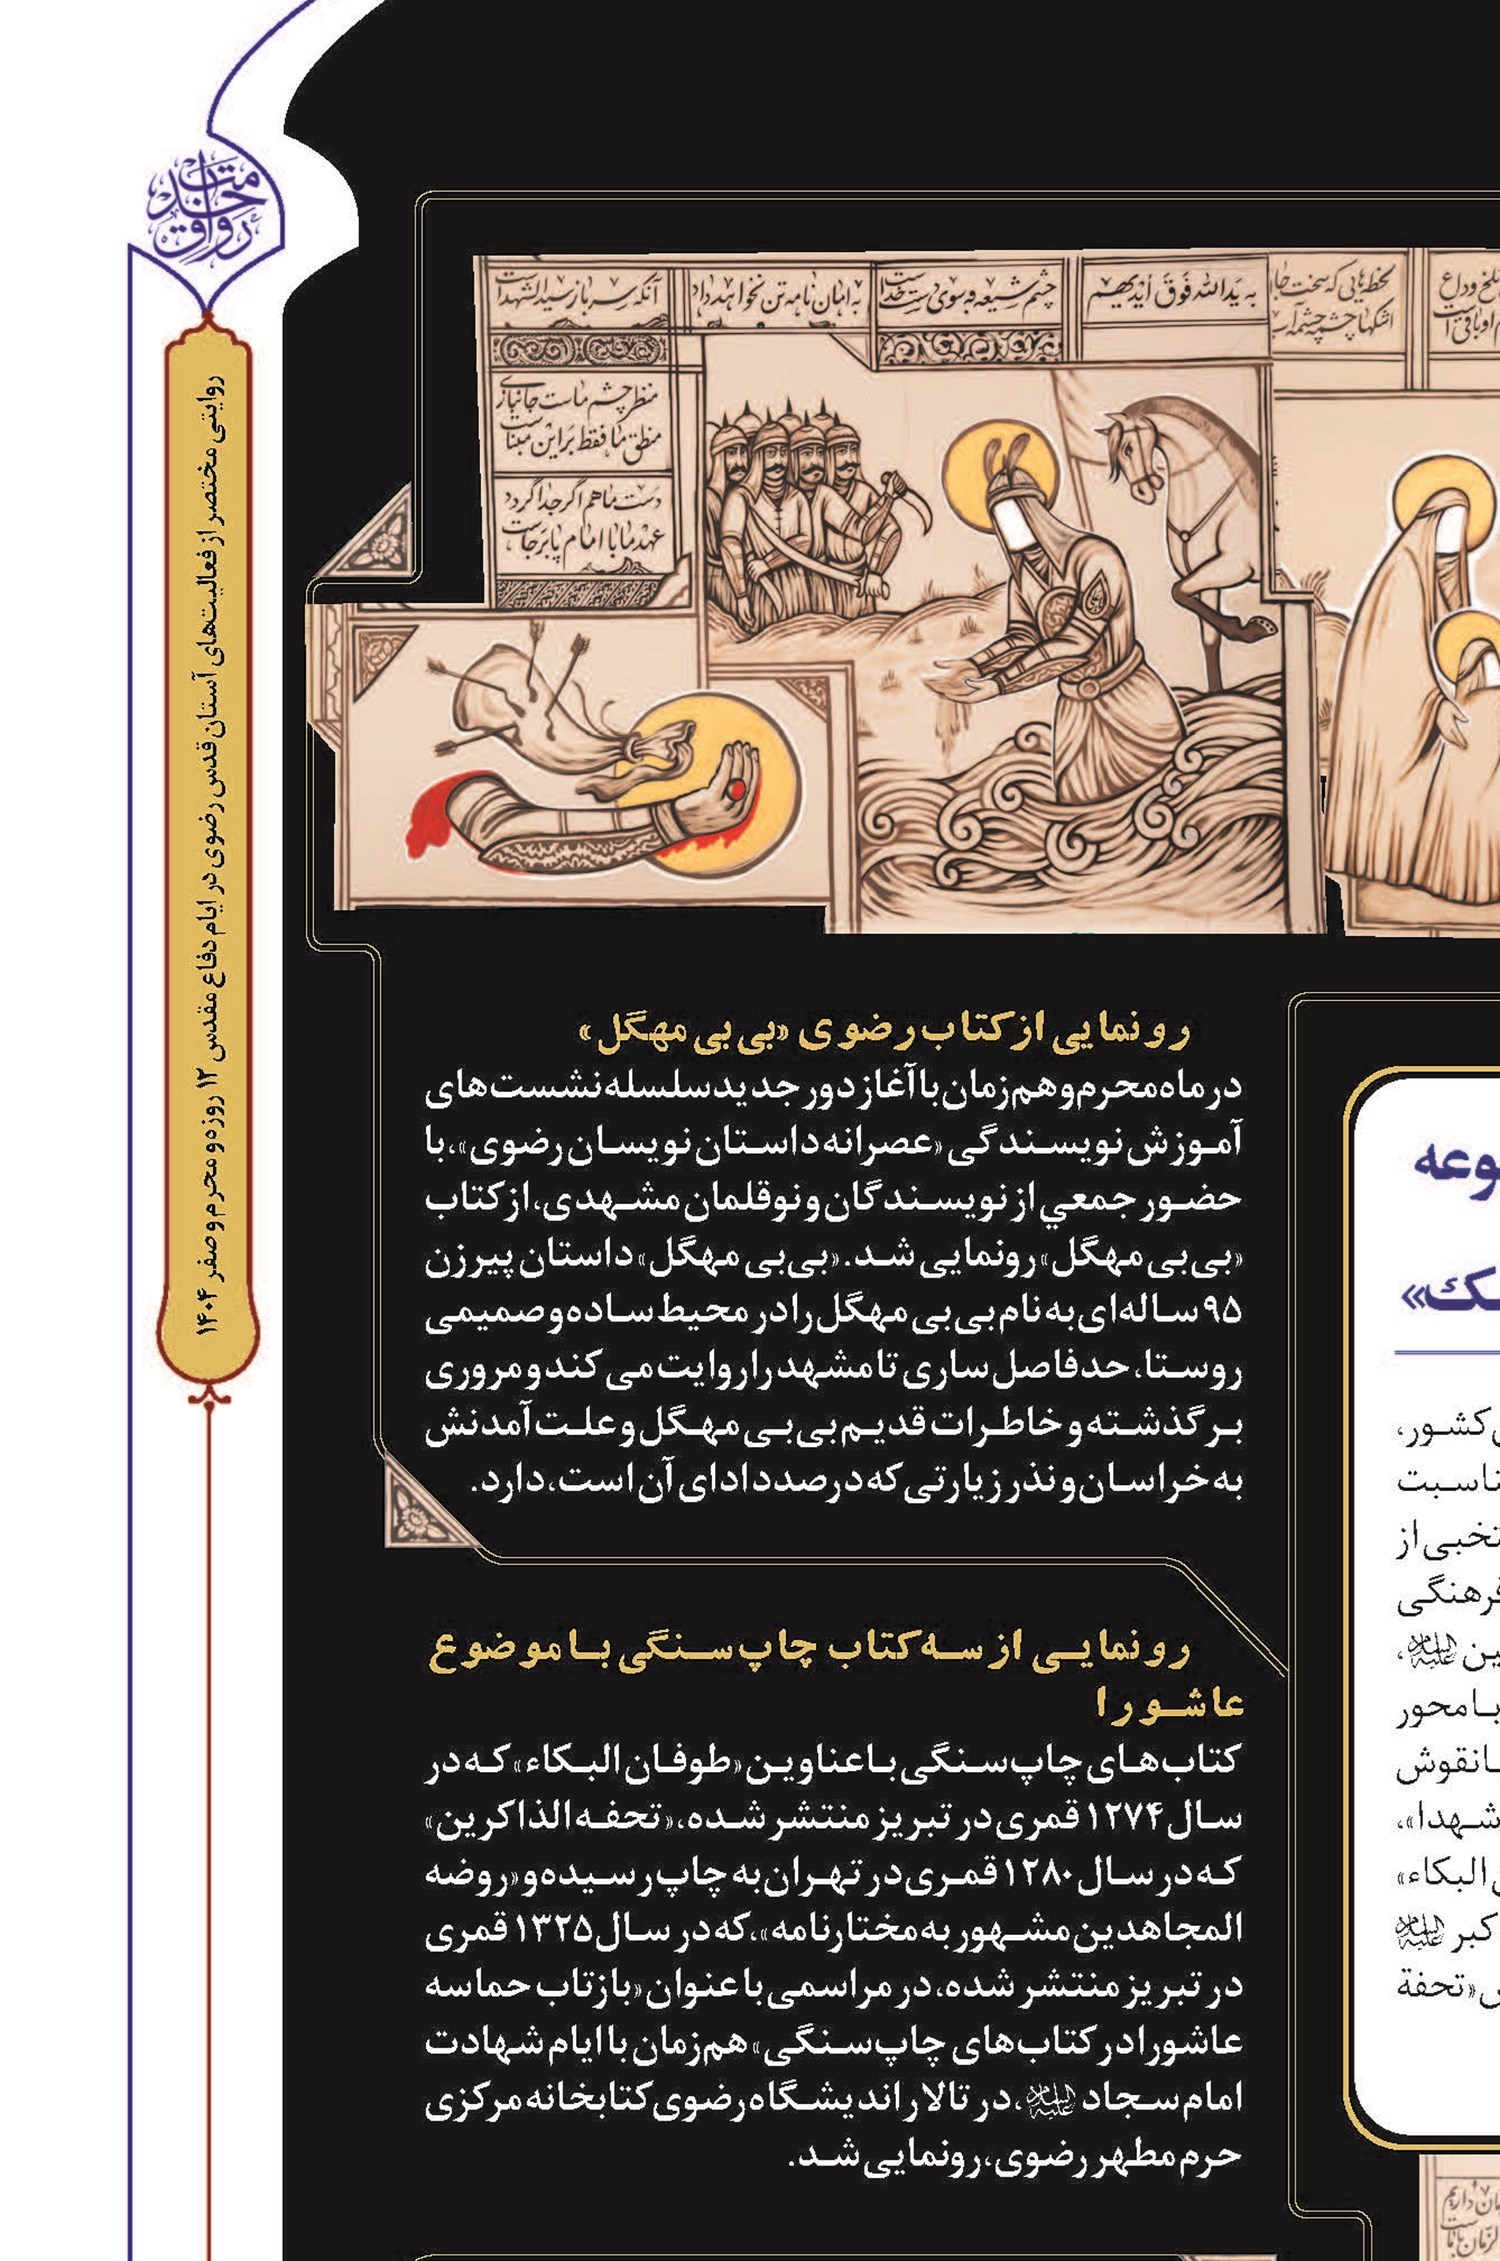 رواق خدمت
روایتی مختصر از فعالیت‌های آستان قدس رضوی در ایام دفاع مقدس ۱۲ روزه و محرم و صفر ۱۴۰۴
لخ وداع
لحظ‌هایی که سخت جا
اشکها چشمه چشمه آب
به یَدالله فَوقَ أیدیهِم
چشم شیعه به سوی دست خداست
به امان نامه تن نخواهد داد
آنکه سرباز سیدالشهداست
منظر چشم ماست جانبازی
منطق ما فقط بر این مبناست
دست ما هم اگر جدا گردد
عهد ما با امام پابرجاست
رونمایی از کتاب رضوی «بی بی مهگل»
در ماه محرم و هم‌زمان با آغاز دور جدید سلسله نشست‌های
آموزش نویسندگی «عصرانه داستان نویسان رضوی»، با
حضور جمعي از نویسندگان و نوقلمان مشهدی، از کتاب
«بی‌بی مهگل» رونمایی شد. «بی‌بی مهگل» داستان پیرزن
۹۵ ساله‌ای به نام بی‌بی مهگل را در محیط ساده و صمیمی
روستا، حدفاصل ساری تا مشهد را روایت می کند و مروری
بر گذشته و خاطرات قدیم بی‌بی مهگل و علت آمدنش
به خراسان و نذر زیارتی که درصدد ادای آن است، دارد.
رونمایی از سه کتاب چاپ سنگی با موضوع
عاشورا
کتاب‌های چاپ سنگی با عناوین «طوفان البکاء» که در
سال ۱۲۷۴ قمری در تبریز منتشر شده، «تحفه الذاکرین»
که در سال ۱۲۸۰ قمری در تهران به چاپ رسیده و «روضه
المجاهدین مشهور به مختارنامه»، که در سال ۱۳۲۵ قمری
در تبریز منتشر شده، در مراسمی با عنوان «بازتاب حماسه
عاشورا در کتاب‌های چاپ سنگی» هم‌زمان با ایام شهادت
امام سجاد علیه‌السلام، در تالار اندیشگاه رضوی کتابخانه مرکزی
حرم مطهر رضوی، رونمایی شد.
وعه
ک»
کشور،
ناسبت
تخبی از
فرهنگی
ین علیه‌السلام،
با محور
انقوش
شهدا»،
البکاء»
کبر علیه‌السلام
«تحفة